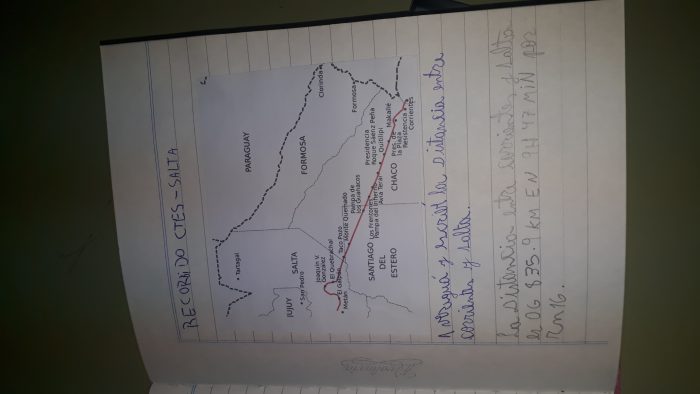 RECORRIDO CTES-SALTA
PARAGUAY
Tartagal
Clorinda
FORMOSA
Formosa
SALTA
JUJUY
San Pedro
Joaquín V.
González
El Quebrachal
El Galpón
Metán
Taco Pozo
Monte Quemado
Pampa de
los Guanacos
Los Frentones
Pampa del Infierno
Avia Terai
Presidencia
Roque Sáenz Peña
Quitilipi
Pres. de
la Plaza
Makallé
Resistencia
Corrientes
CHACO
SANTIAGO
DEL
ESTERO
y escribí la distancia entre
corrientes y salta.
La distancia esta corrientes y salta
es DG 835.9 km EN 9H 47 MIN por
Rn16.